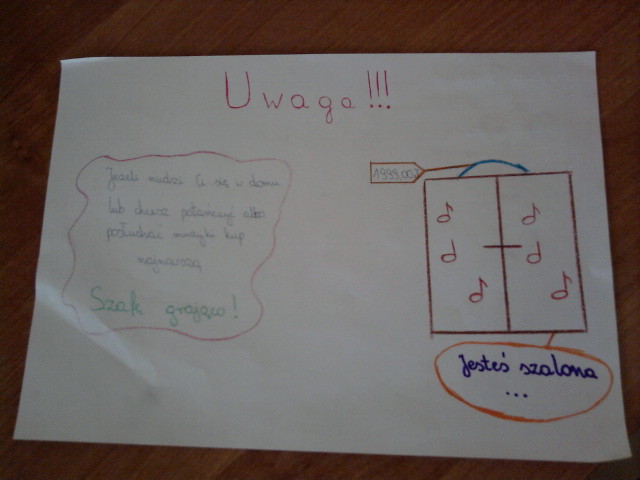 Uwaga!!!
Jeżeli nudzi Ci się w domu
lub chcesz potańczyć albo
posłuchać muzyki kup
najnowszą
Szafę grającą!
1999,00zł
Jesteś szalona
...